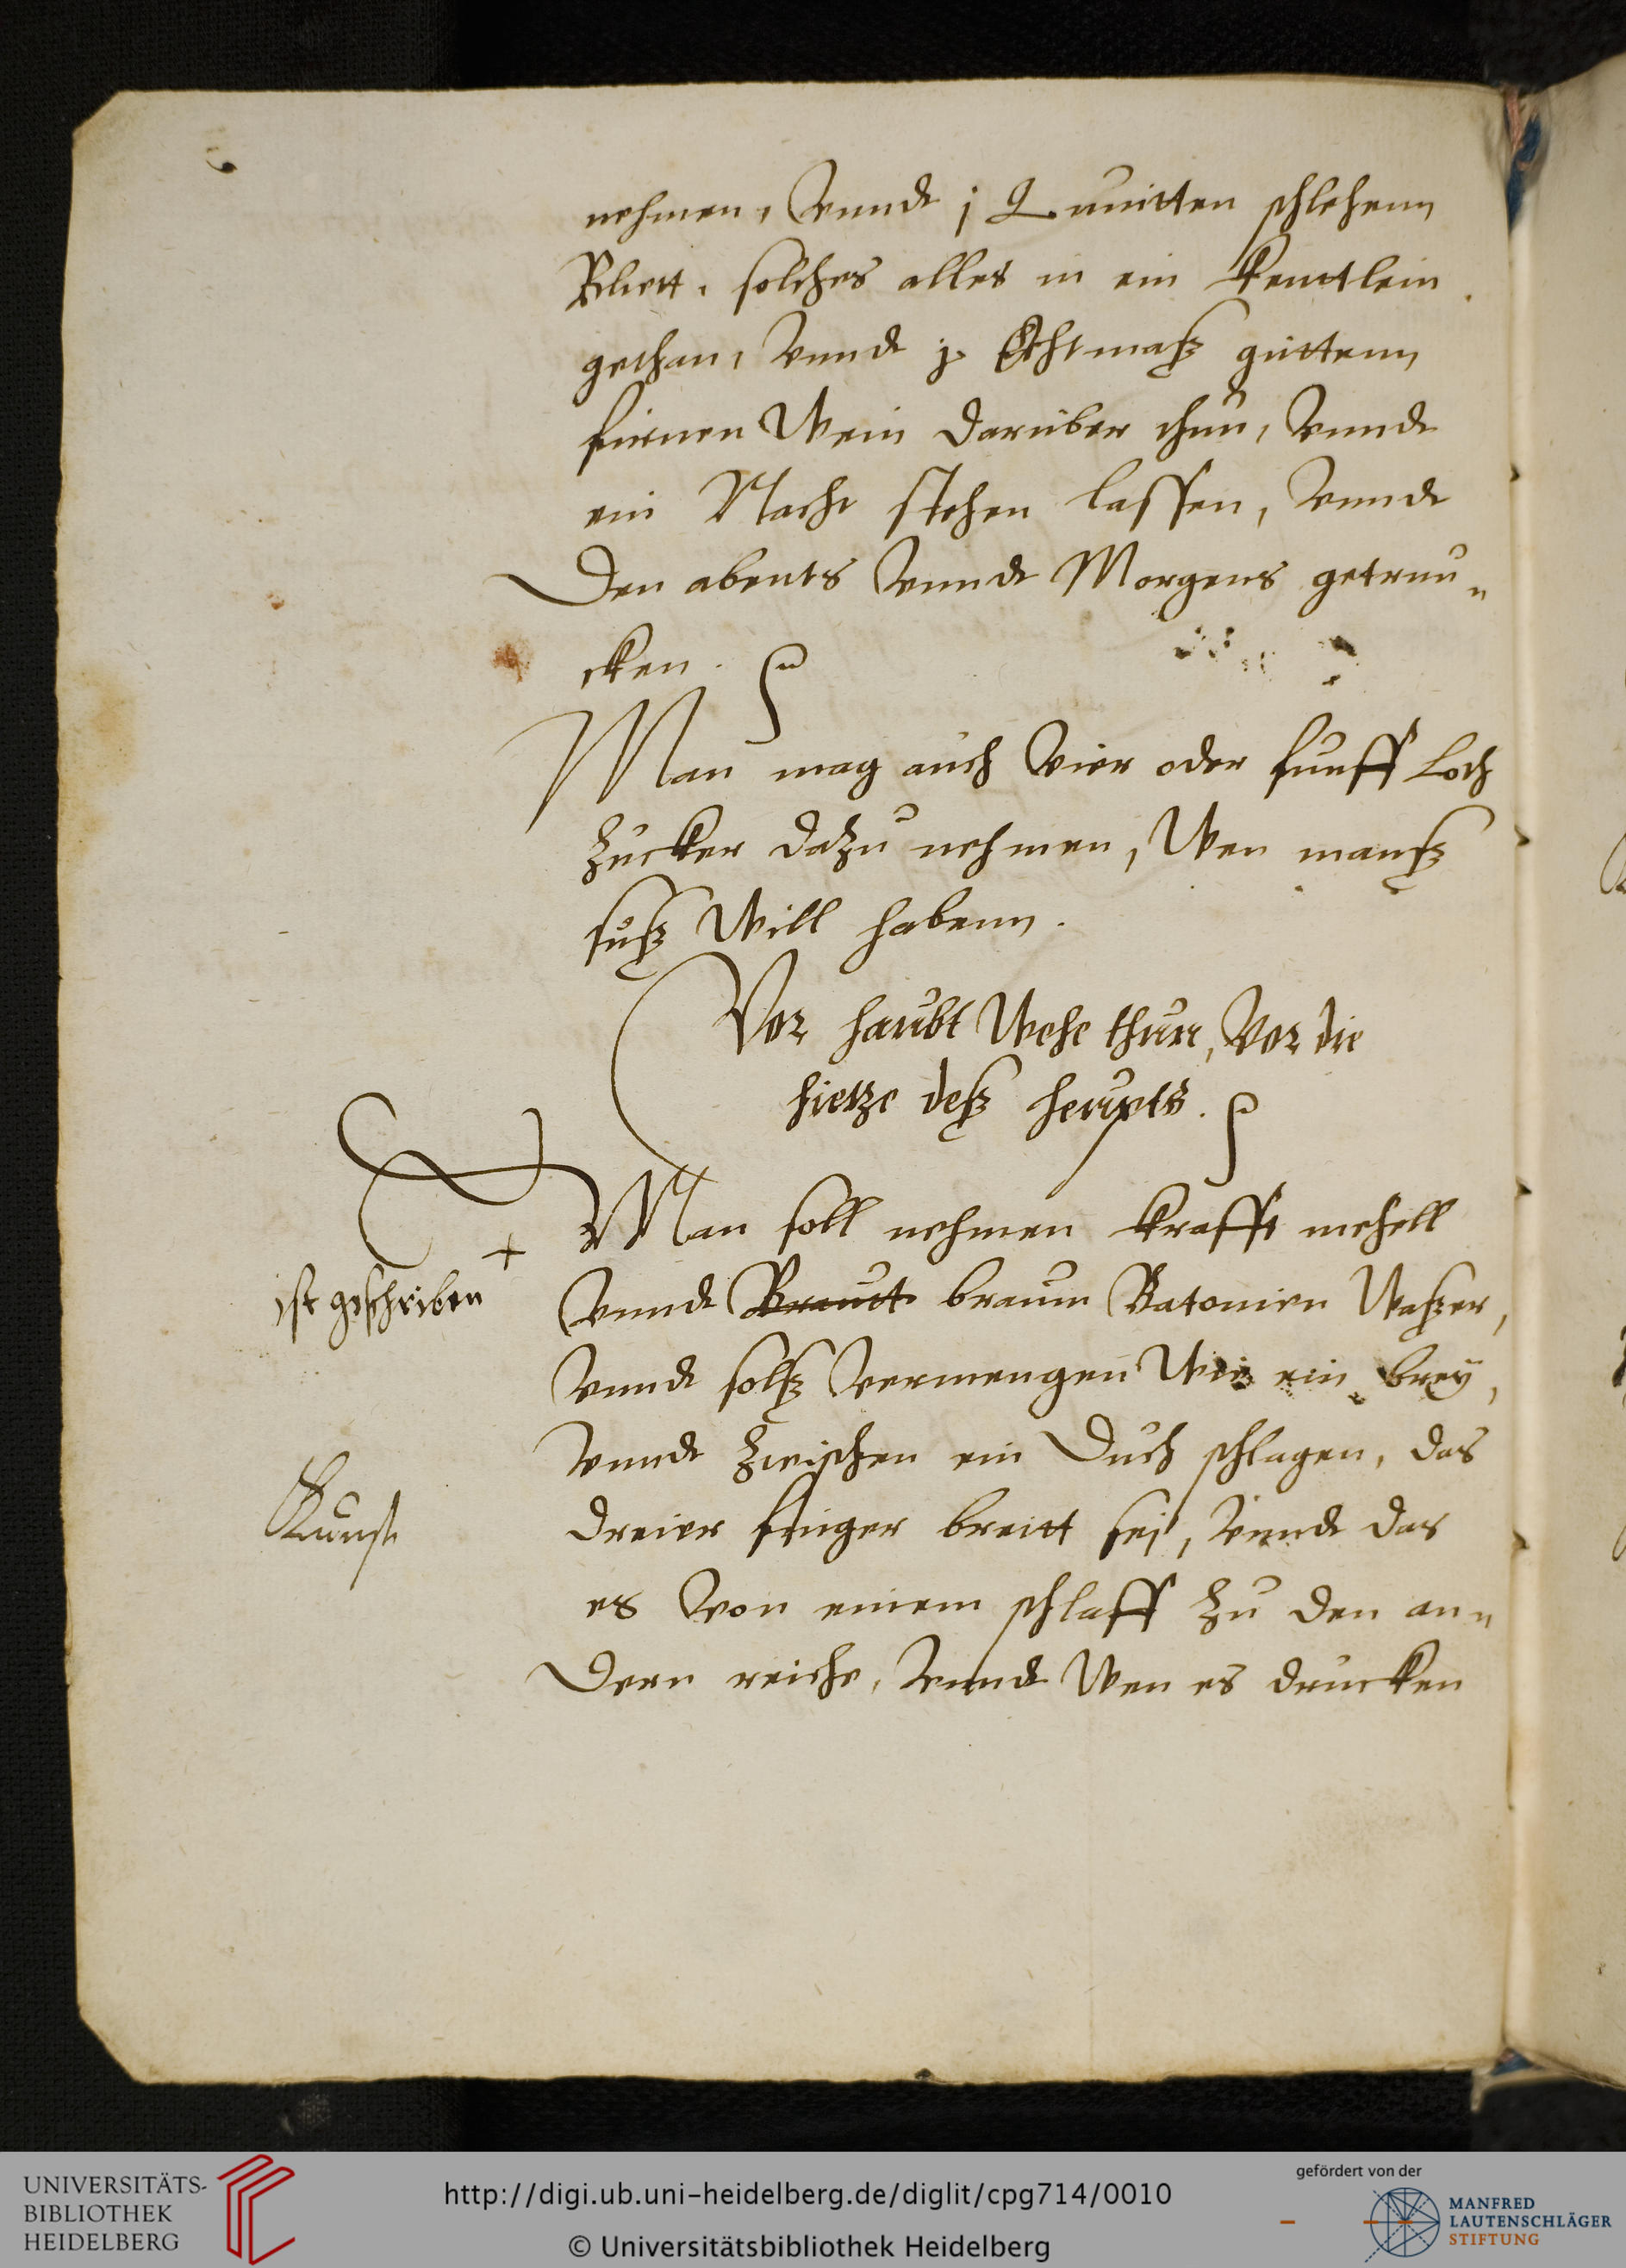 nehmen, vnnd j Quitten schlehenn
Blett, solches alles in ein kentlein
gethan, vnnd j. Echtmaß guttenn
firnen Wein darüber thun, vnnd
ein Nacht stehen lassen, vnnd
Den abents vnnd Morgens getrun„
cken.
Man mag auch vier oder funff Loth
Zucker dazu nehmen, Wen manß
suß Will habenn.
Vor haubt Wehe thun, Vor die
hietze deß heupts.
Man soll nehmen krafft mehell
+
ist geschriben
vnnd Braut braun Batonien Waßer,
vnnd solß vermengen Wie ein brey,
vnnd zwischen ein Duch schlagen, das
Kunst
dreier finger breitt sej, vnnd das
es von einem schlaff zu den an„
Dern reiche, vnnd Wen es drucken
UNIVERSITÄTS-
BIBLIOTHEK
HEIDELBERG
http://digi.ub.uni-heidelberg.de/diglit/cpg714/0010
© Universitätsbibliothek Heidelberg
gefördert von der
MANFRED
LAUTENSCHLÄGER
STIFTUNG